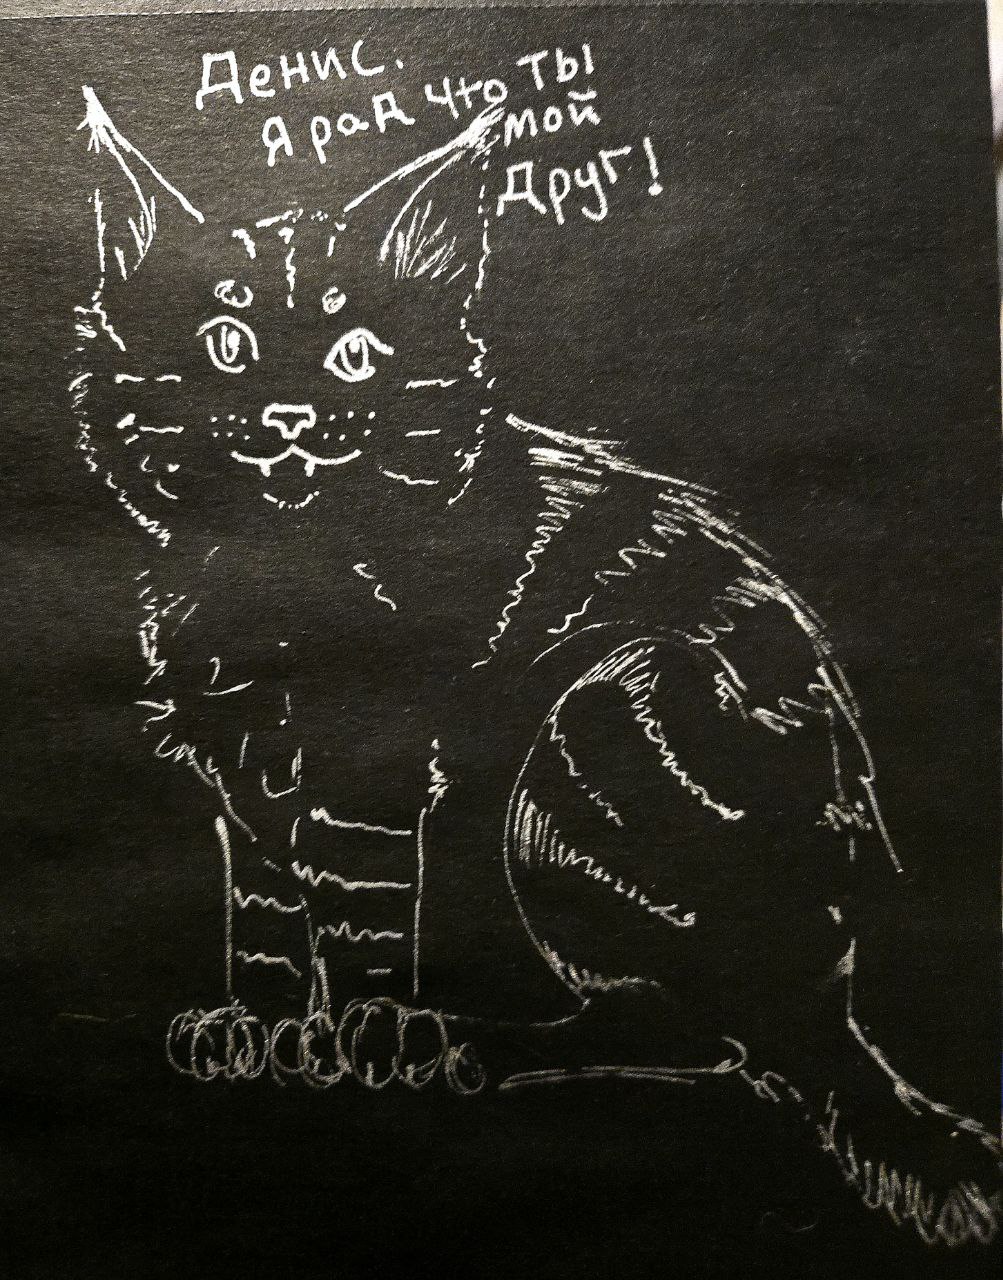 Денис.
Я рад что ты
мой
Друг!